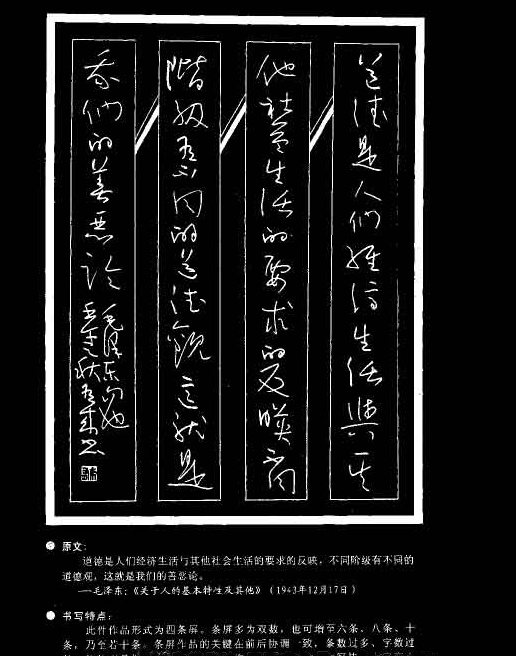 道德是人们经济生活與其
他社会生活的要求的反映
階级有不同的道德觀这就是
我们的善恶论
毛泽东句
原文：
道德是人们经济生活与其他社会生活的要求的反映，不同阶级有不同的
道德观，这就是我们的善恶论。
——毛泽东：《关于人的基本特性及其他》（1943年12月17日）
书写特点：
此件作品形式为四条屏。条屏多为双数，也可增至六条、八条、十
条，乃至若十条。条屏作品的关键在前后协调一致，条数过多、字数过